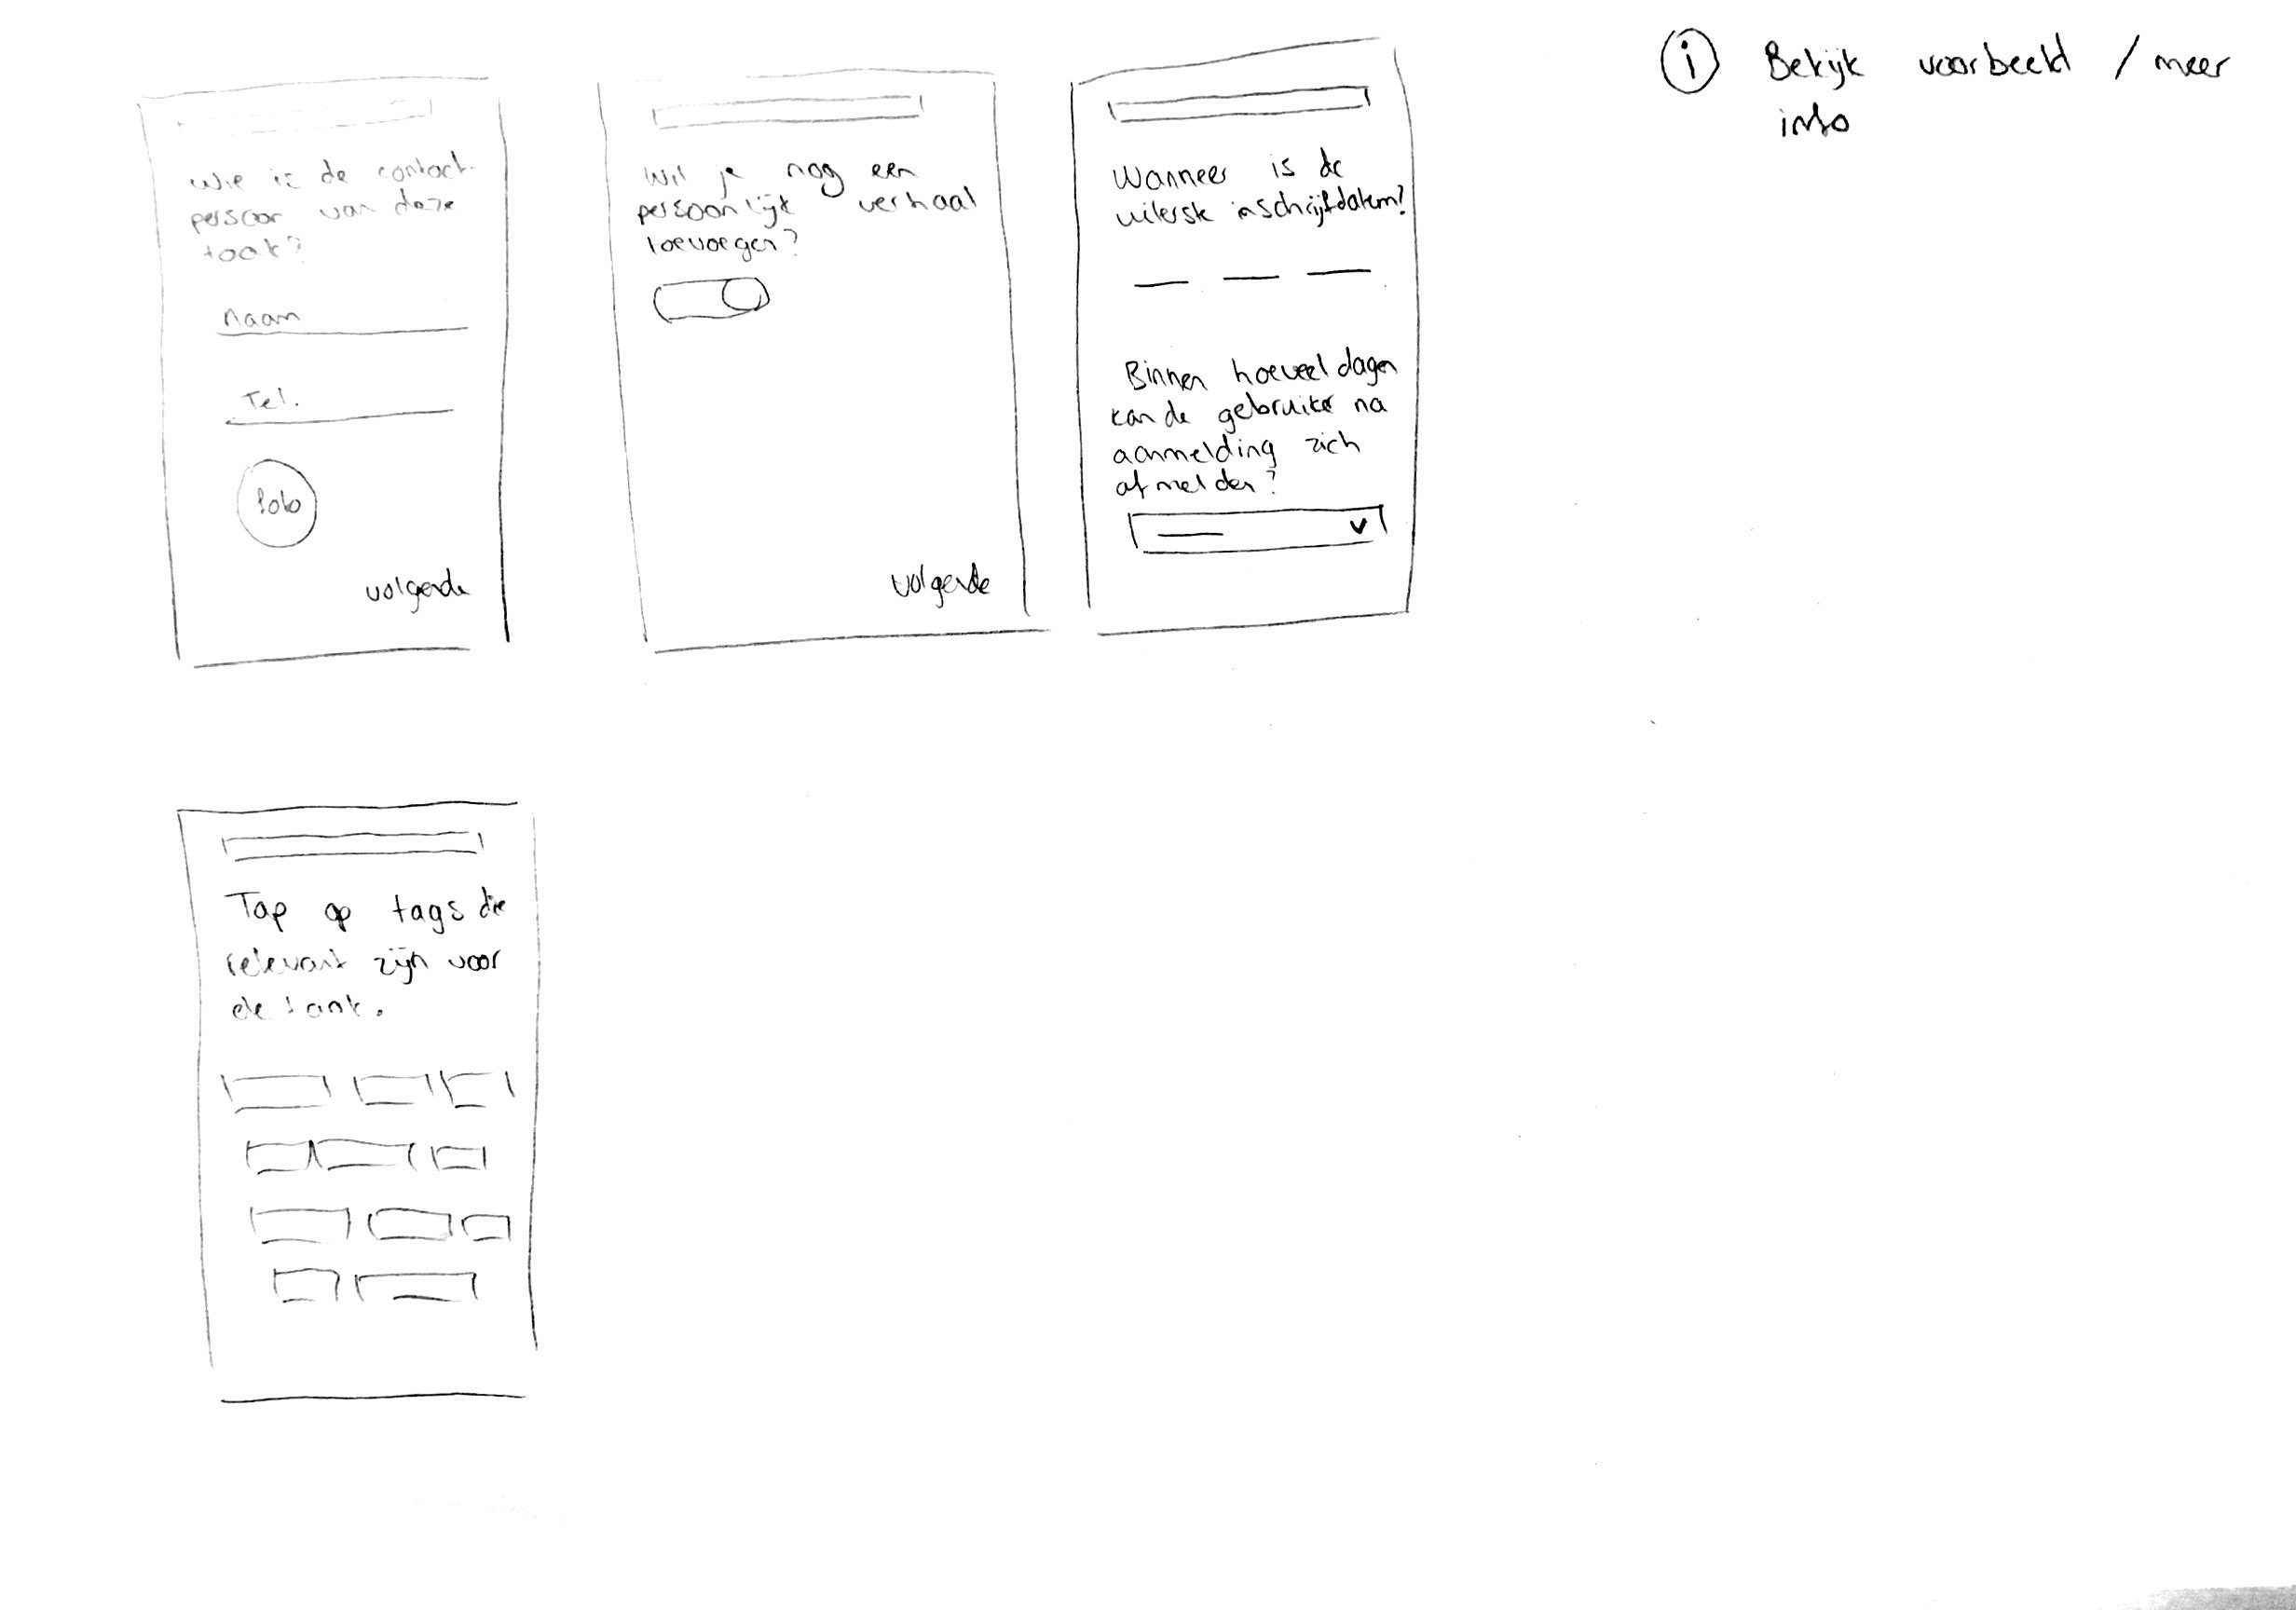 Wie is de contact-
persoon van deze
taak?
naam
Tel.
foto
volgende
Wil je nog een
persoonlijk verhaal
toevoegen?
volgende
Wanneer is de
uiterste inschrijfdatum?
Binnen hoeveel dagen
kan de gebruiker na
aanmelding zich
afmelden?
i Bekijk voorbeeld / meer
info
Tap op tags die
relevant zijn voor
de taak.